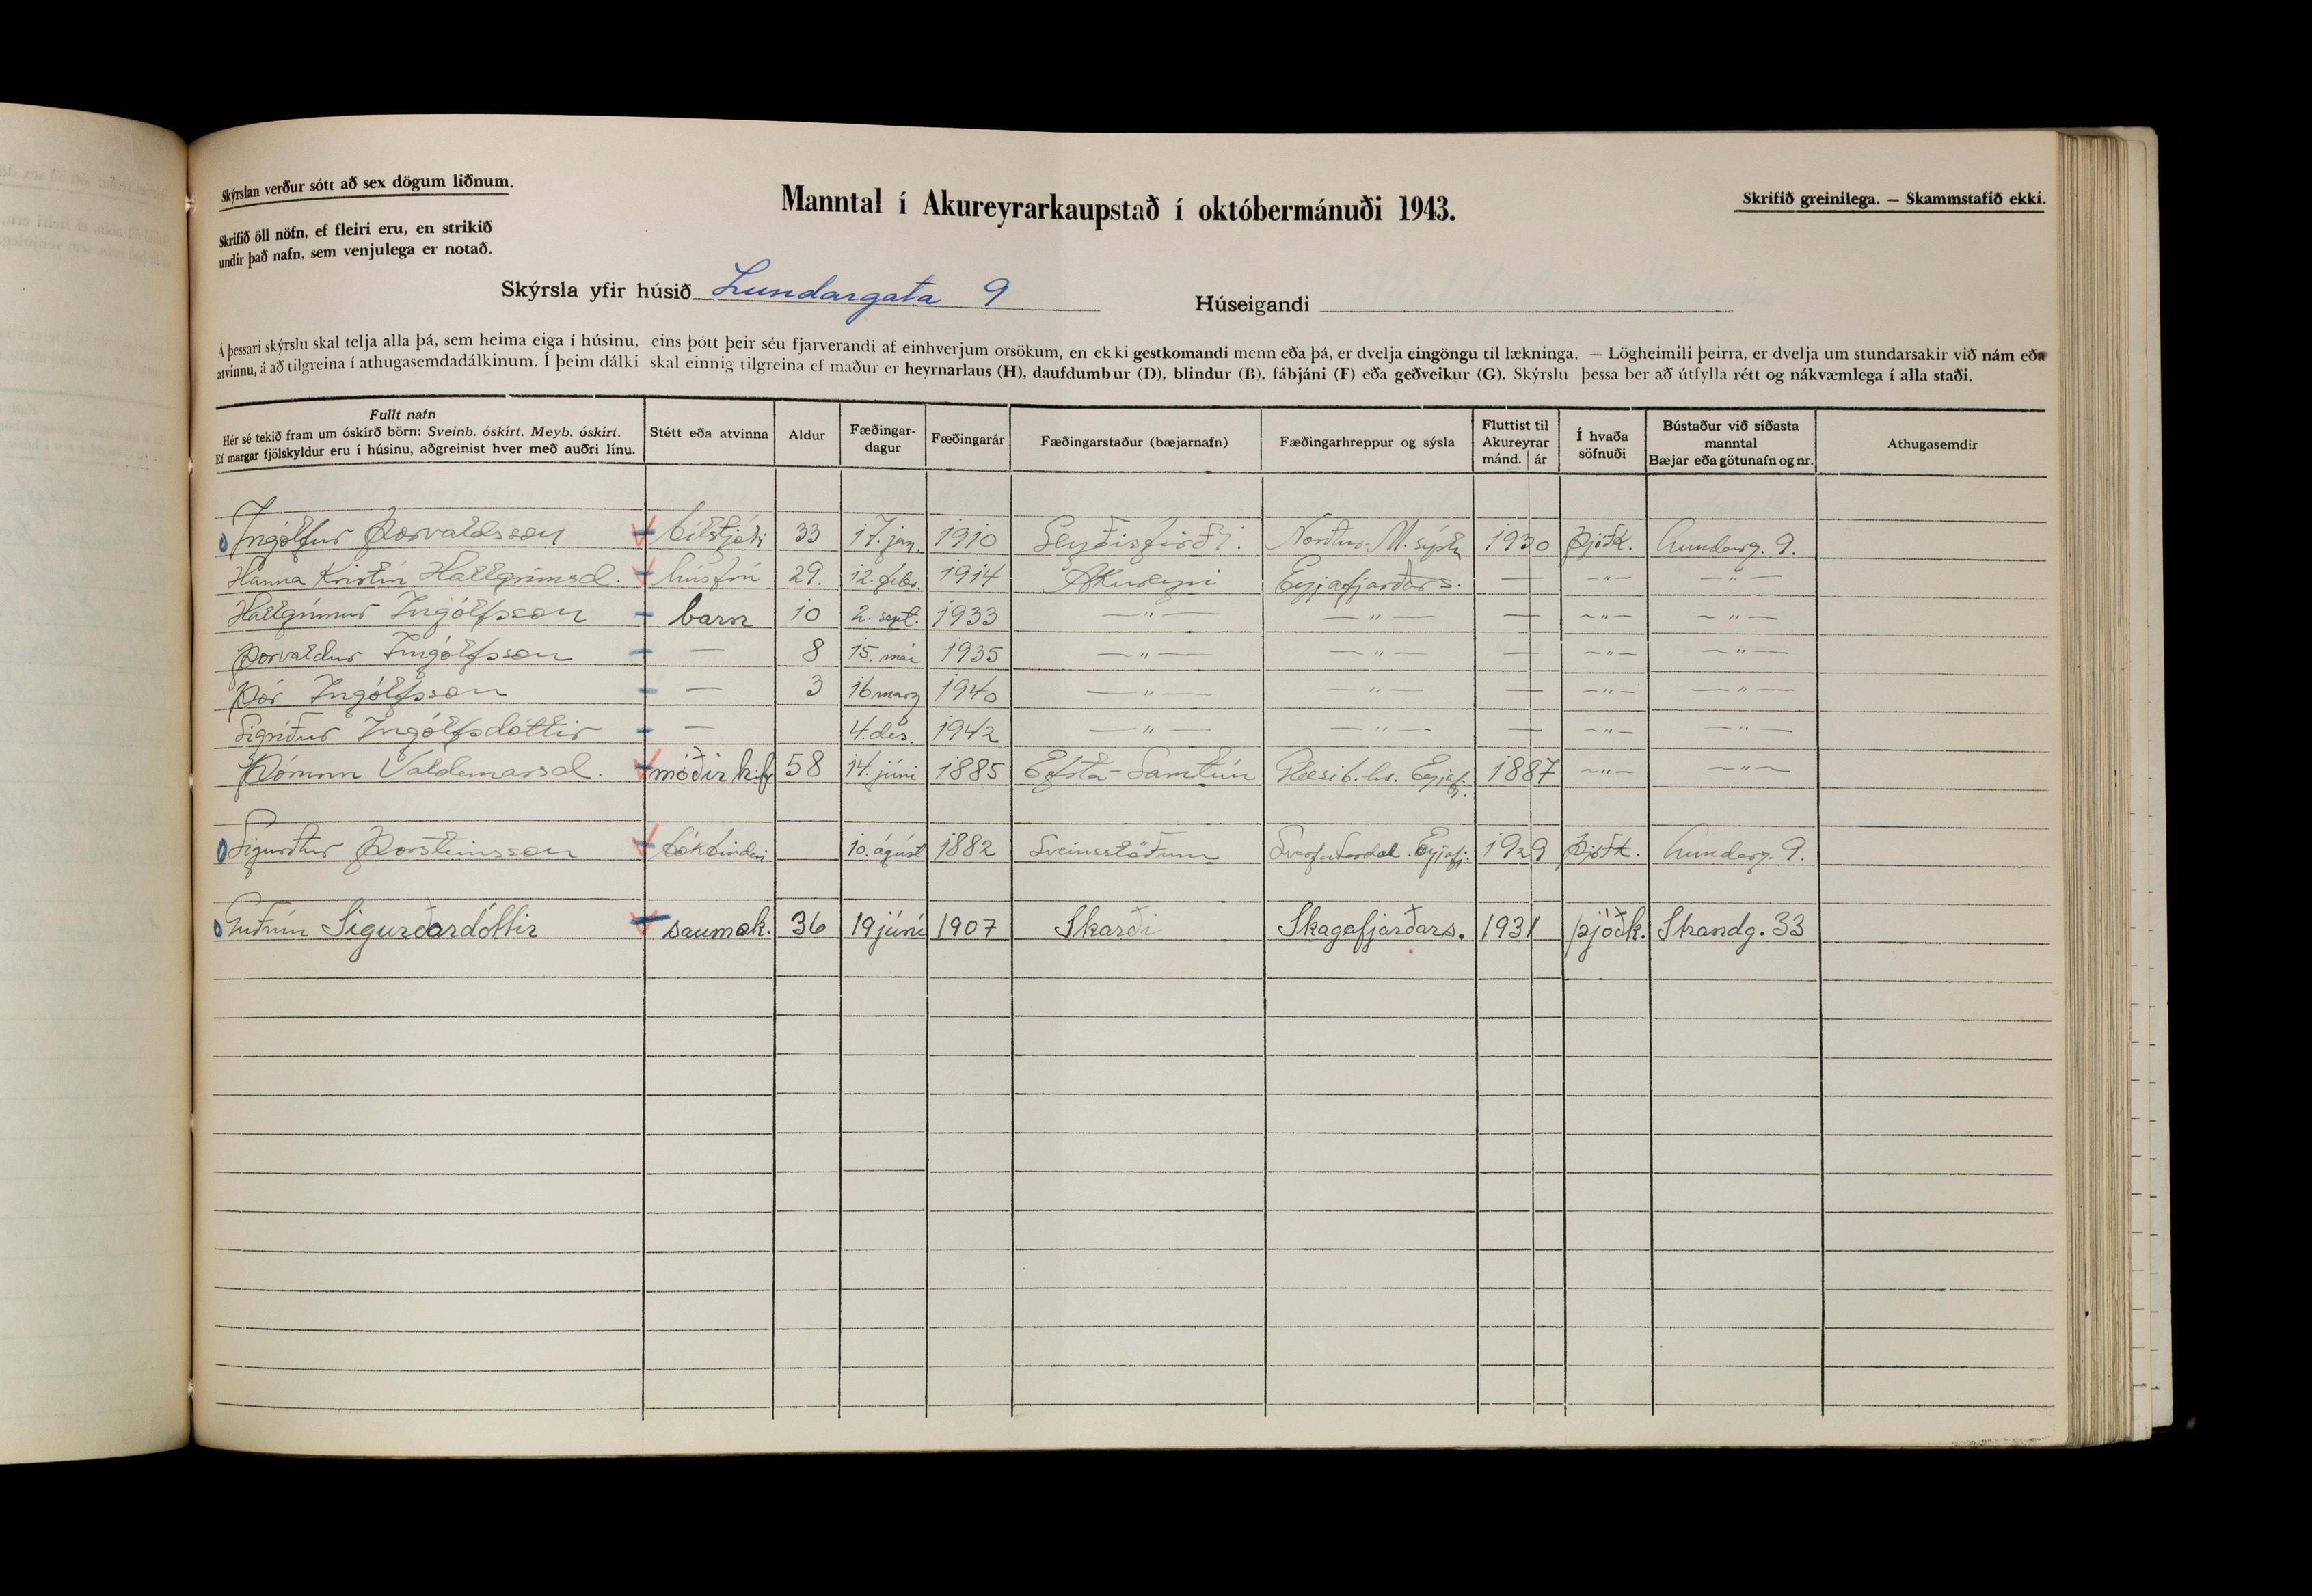 Skýrslan verður sótt að sex dögum liðnum.
Skrifið öll nöfn, ef fleiri eru, en strikið
undir það nafn, sem venjulega er notað.
Manntal í Akureyrarkaupstað í októbermánuði 1943.
Skrifið greinilega. — Skammstafið ekki.
Skýrsla yfir húsið Lundargata 9 Húseigandi
Á þessari skýrslu skal telja alla þá, sem heima eiga í húsinu, eins þótt þeir séu fjarverandi af einhverjum orsökum, en ekki gestkomandi menn eða þá, er dvelja eingöngu til lækninga. — Lögheimili þeirra, er dvelja um stundarsakir við nám eða
atvinnu, á að tilgreina í athugasemdadálkinum. Í þeim dálki skal einnig tilgreina ef maður er heyrnarlaus (H), daufdumbur (D), blindur (B), fábjáni (F) eða geðveikur (G). Skýrslu þessa ber að útfylla rétt og nákvæmlega í alla staði.
Fullt nafn
Hér sé tekið fram um óskírð börn: Sveinb. óskírt. Meyb. óskírt.
Ef margar fjölskyldur eru í húsinu, aðgreinist hver með auðri línu.
Stétt eða atvinna
Aldur
Fæðingar-
dagur
Fæðingarár
Fæðingarstaður (bæjarnafn)
Fæðingarhreppur og sýsla
Fluttist til
Akureyrar
mánd. ár
Í hvaða
söfnuði
Bústaður við síðasta
manntal
Bæjar eða götunafn og nr.
Athugasemdir
Ingólfur Þorvaldsson bílstjóri 33 17. jan. 1910 Seyðisfirði. Norður-M.sýslu 1930 Þjóðk. Lundarg. 9.
Hanna Kristín Hallgrímsd. húsfrú 29. 12. febr. 1914 Akureyri Eyjafjarðars. — -"- — " —
Hallgrímur Ingólfsson barn 10 2. sept. 1933 — " — — " — — -"- — " —
Þorvaldur Ingólfsson — 8 15. maí 1935 — " — — " — — -"- — " —
Þór Ingólfsson — 3 16 marz 1940 — " — " — — -"- — " —
Sigríður Ingólfsdóttir — 4. des. 1942 — " — — " — — -"- — " —
Þórunn Valdemarsd. móðir h.f 58 14. júní 1885 Efsta-Samtúni Glæsib.hr. Eyjafj. 1887 -"- — " —
Sigurður Þorsteinsson bókbindari 10. ágúst 1882 Sveinsstöðum Svarfaðardal. Eyjafj. 1929 Þjóðk. Lundarg. 9.
Guðrún Sigurðardóttir saumak. 36 19 júní 1907 Skarði Skagafjarðars. 1931 þjóðk. Strandg. 33